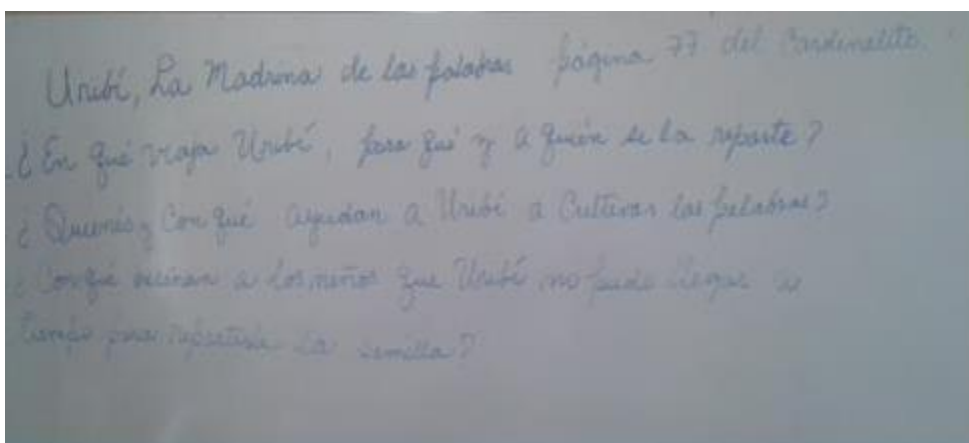 Uribí, La Madrina de las palabras página 77 del Cardenalito.
¿En qué viaja Uribí, para qué y a quién se la reparte?
¿Quienés y Con qué ayudan a Uribí a Cultivar las palabras?
¿Con qué a los niños que Uribí no pudo llegar a
tiempo para repartirle la semilla?